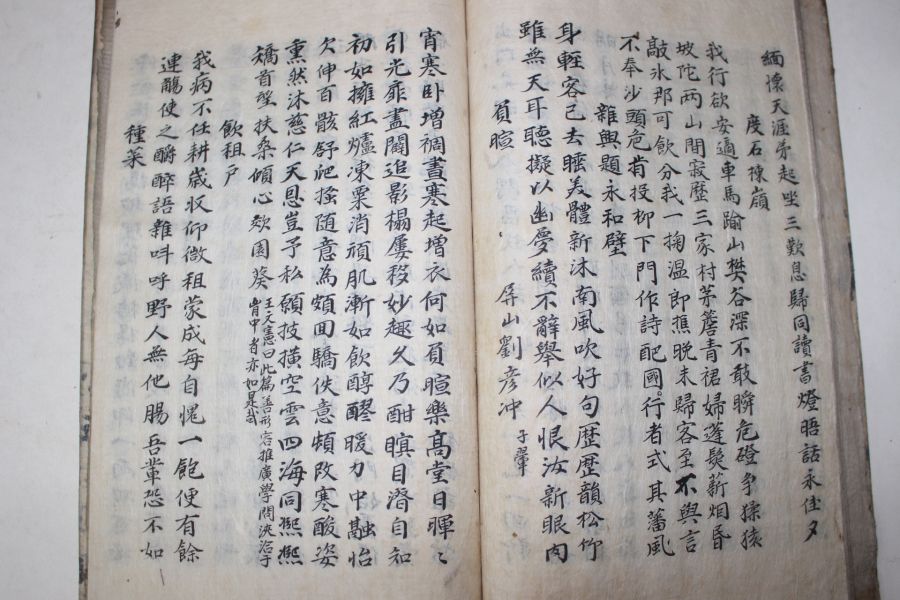 緬懷天涯弟起坐三歎息歸同讀書燈晤話永佳夕
度石棟嶺
我行欲安適車馬踰山樊谷深不敢瞬危磴爭猱猿
坡陀兩山間寂歷三家村茅簷青裙婦蓬髮薪烟昏
敲氷那可飮分我一掬温郎樵晩未歸客至不與言
不奉沙頭危肯投柳下門作詩配國行者式其藩風
雜興題永和壁
身輕客已去曠美體新沐南風吹好句歷歷韻松竹
雖無天耳聽擬以幽夢續不辭舉似人恨汝新眼肉
屛山劉彦冲 子翬
負暄
宵寒卧增裯晝寒起增衣何如負暄樂高堂日暉〻
引光扉盡闢追影榻屢移妙趣久乃酣瞑目潛自知
初如擁紅爐凍粟消頑肌漸如飮醇醪暖力中融怡
欠伸百骸舒爬搔隨意為頗回驕佚意頓改寒酸姿
熏然沐慈仁天恩豈予私願披橫空雲四海同熙熙
矯首望扶桑傾心效園葵 王文憲曰此篇善形容推廣學問浹洽于
胷中者亦如是哉
飮租戶
我病不任耕歲收仰微租蒙成每自愧一飽便有餘
連觴使之酹醉語雜呌呼野人無他腸吾輩恐不如
種菜